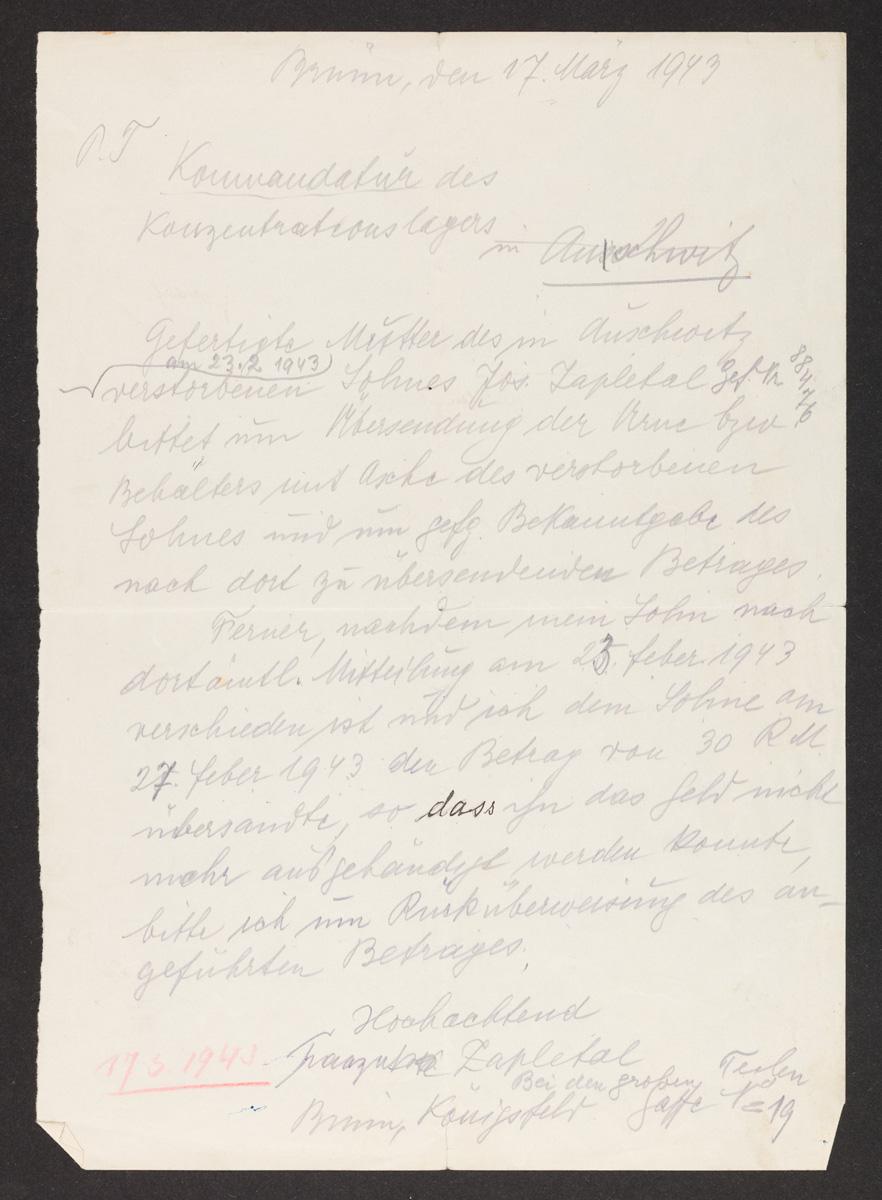 Brünn, den 17. März 1943
P.T
Kommandatur des
Konzentrationslagers
in Auschwitz
Gefertigte Mutter des in Auschwitz
am 23.2 1943)
verstorbenen Sohnes Jos. Zapletal Gef. Nr
bittet um Übersendung der Urne bzw
Behälters mit Asche des verstorbenen
Sohnes und um gefg. Bekanntgabe des
nach dort zu übersendenden Betrages.
Ferner, nachdem mein Sohn nach
dortämtl. Mitteilung am 23. feber 1943
verschieden ist und ich dem Sohne am
27. feber 1943 den Betrag von 30 RM
übersandte, so dass ihn das Geld nicht
mehr ausgehändigt werden konnte,
bitte ich um Rücküberweisung des an-
geführten Betrages.
Hochachtend
17 3. 1943 Zapletal
Bei den großen
Brünn, Königsfeld Gasse No 19